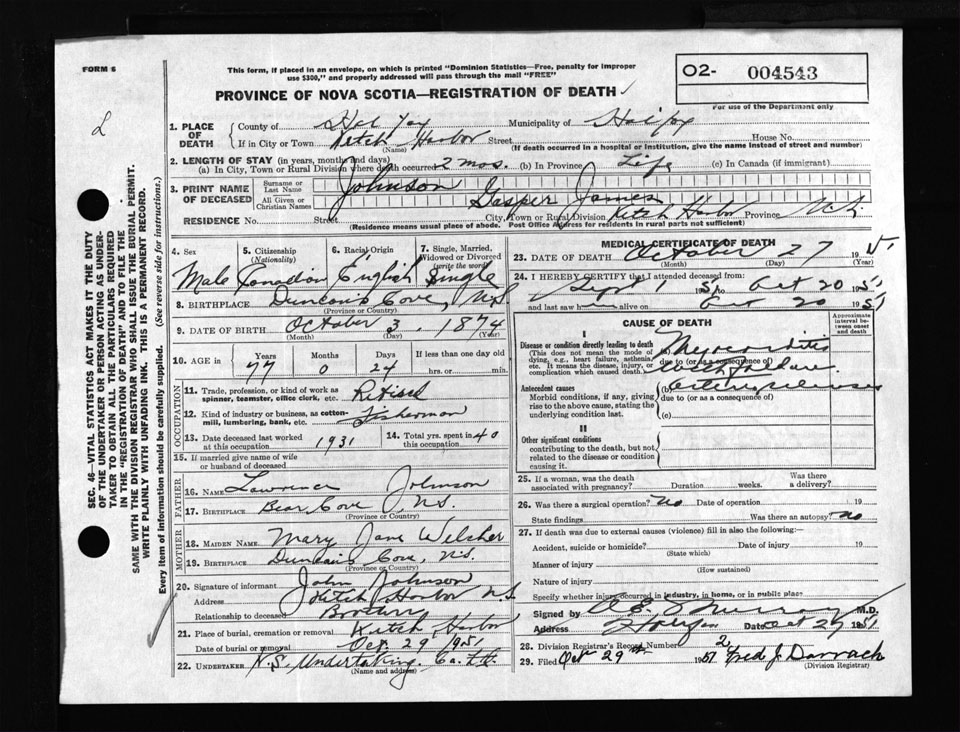 FORM 6
This form, if placed in an envelope, on which is printed "Dominion Statistics—Free, penalty for improper
use $300," and properly addressed will pass through the mail "FREE"
O2- 004543
PROVINCE OF NOVA SCOTIA—REGISTRATION OF DEATH
For use of the Department only
L
SEC. 46—VITAL STATISTICS ACT MAKES IT THE DUTY
OF THE UNDERTAKER OR PERSON ACTING AS UNDER-
TAKER TO OBTAIN ALL THE PARTICULARS REQUIRED
IN THE "REGISTRATION OF DEATH" AND TO FILE THE
SAME WITH THE DIVISION REGISTRAR WHO SHALL ISSUE THE BURIAL PERMIT.
WRITE PLAINLY WITH UNFADING INK. THIS IS A PERMANENT RECORD.
Every item of information should be carefully supplied. (See reverse side for instructions.)
1. PLACE OF DEATH County of Halifax Municipality of Halifax
If in City or Town Ketch Harbor Street House No.
(Name) (If death occurred in a hospital or institution, give the name instead of street and number)
2. LENGTH OF STAY (in years, months and days)
(a) In City, Town or Rural Division where death occurred 2 mos. (b) In Province Life (c) In Canada (if immigrant)
3. PRINT NAME OF DECEASED Surname or Last Name Johnson
All Given or Christian Names Gasper James
RESIDENCE No. Street City, Town or Rural Division Ketch Harbor Province N.S.
(Residence means usual place of abode. Post Office Address for residents in rural parts not sufficient)
4. Sex 5. Citizenship (Nationality) 6. Racial Origin 7. Single, Married, Widowed or Divorced (write the word)
Male Canadian English Single
8. BIRTHPLACE Duncan's Cove, N.S.
(Province or Country)
9. DATE OF BIRTH October 3, 1874
(Month) (Day) (Year)
10. AGE in Years Months Days If less than one day old
77 0 24 hrs. or min.
OCCUPATION
11. Trade, profession, or kind of work as
spinner, teamster, office clerk, etc. Retired
12. Kind of industry or business, as cotton-
mill, lumbering, bank, etc. Fisherman
13. Date deceased last worked
at this occupation 1931
14. Total yrs. spent in
this occupation 40
15. If married give name of wife
or husband of deceased
FATHER
16. NAME Lawrence Johnson
17. BIRTHPLACE Bear Cove, N.S.
(Province or Country)
MOTHER
18. MAIDEN NAME Mary Jane Welcher
19. BIRTHPLACE Duncan's Cove, N.S.
(Province or Country)
20. Signature of informant John Johnson
Address Ketch Harbor N.S.
Relationship to deceased Brother
21. Place of burial, cremation or removal Ketch Harbor
Date of burial or removal Oct. 29 1951
22. UNDERTAKER N.S. Undertaking Co. Ltd.
(Name and address)
MEDICAL CERTIFICATE OF DEATH
23. DATE OF DEATH October 27 1951
(Month) (Day) (Year)
24. I HEREBY CERTIFY that I attended deceased from:
Sept 1 1951 to Oct 20 1951
and last saw h alive on Oct 20 1951
CAUSE OF DEATH
Approximate interval be-tween onset and death
I
Disease or condition directly leading to death
(This does not mean the mode of
dying, e.g., heart failure, asthenia,
etc. It means the disease, injury, or
complication which caused death.)
(a) Myocarditis
due to (or as a consequence of)
with failure
Antecedent causes
Morbid conditions, if any, giving
rise to the above cause, stating the
underlying condition last.
(b) arteriosclerosis
due to (or as a consequence of)
(c)
II
Other significant conditions
contributing to the death, but not
related to the disease or condition
causing it.
25. If a woman, was the
death associated with pregnancy? Duration weeks. Was there a delivery?
26. Was there a surgical operation? No Date of operation 19
State findings Was there an autopsy? No
27. If death was due to external causes (violence) fill in also the following:—
Accident, suicide or homicide? Date of injury 19
(State which)
Manner of injury
(How sustained)
Nature of injury
Specify whether injury occurred in industry, in home, or in public place
Signed by Murray M.D.
Address Date Oct 27 1951
28. Division Registrar's Record Number 2
29. Filed Oct 29th 1951 Fred J. Darrach
(Division Registrar)